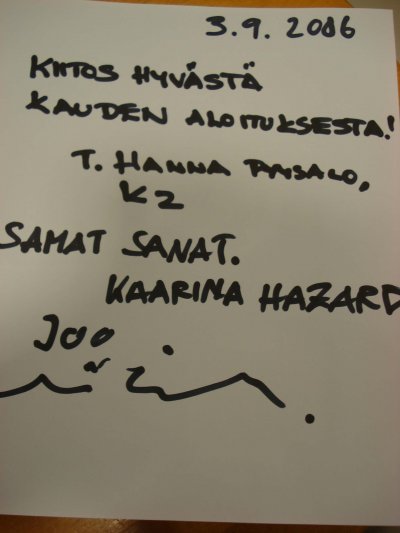 3.9.2006
KIITOS HYVÄSTÄ
KAUDEN ALOITUKSESTA!
T. HANNA RAISALO,
K2
SAMAT SANAT.
KAARINA HAZARD
JOO